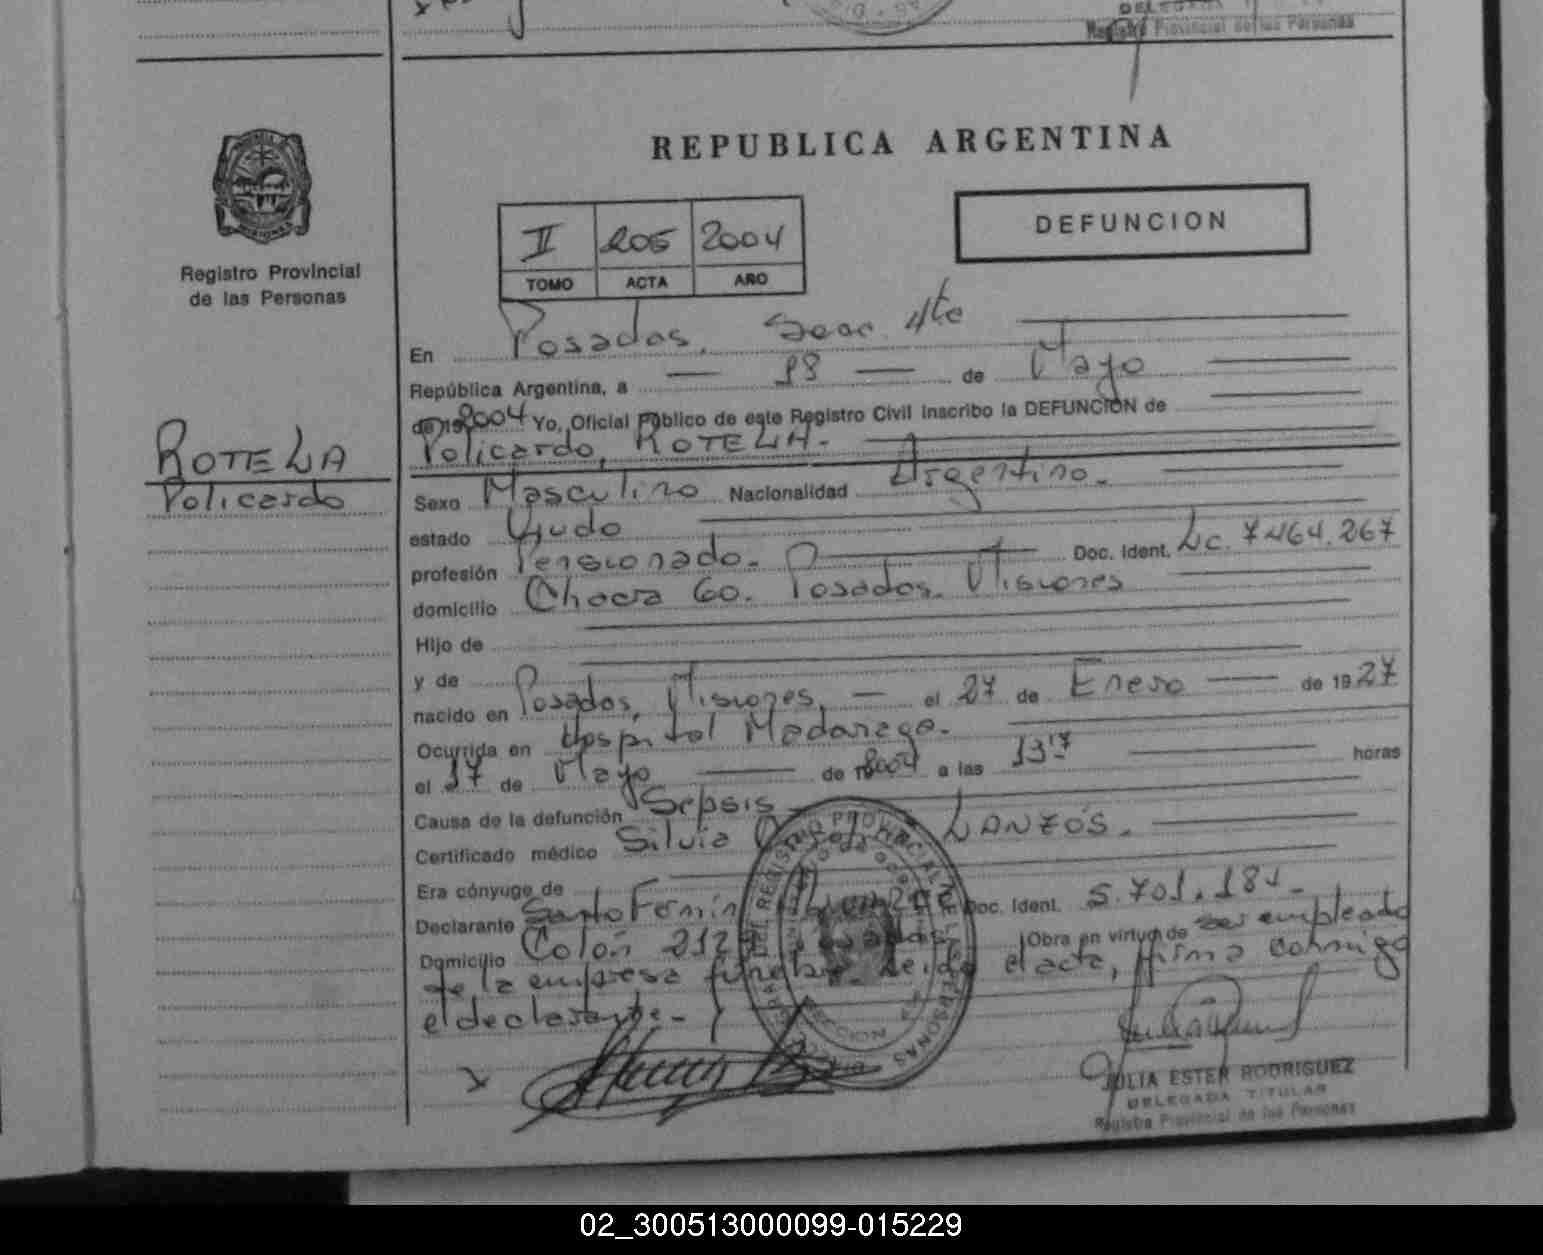 DELEGADA
Registro Provincial de las Personas
REPUBLICA ARGENTINA
Registro Provincial
de las Personas
II 205 2004
TOMO ACTA AÑO
DEFUNCION
En Posadas, Secc. 4ta
República Argentina, a — 18 — de Mayo
de 19 2004 Yo, Oficial Público de este Registro Civil inscribo la DEFUNCION de
ROTELA
Policardo
Policardo, ROTELA.
Sexo Masculino Nacionalidad Argentino.
estado Viudo
profesión Pensionado. Doc. Ident. L.c. 7.464.267
domicilio Chacra 60. Posadas. Misiones
Hijo de
y de
nacido en Posadas, Misiones, — el 27 de Enero de 1927
Ocurrida en Hospital Madariaga.
el 17 de Mayo de 2004 a las 13 17 horas
Causa de la defunción Sepsis
Certificado médico Silvia LANZÓS.
Era cónyuge de
Declarante Santo Fermin Doc. Ident. 5.701.181.
Domicilio Colón 212 Obra en virtud de ser empleado
de la empresa el acta, firma conmigo
el declarante.
JULIA ESTER RODRIGUEZ
DELEGADA TITULAR
Registro Provincial de las Personas
02_300513000099-015229